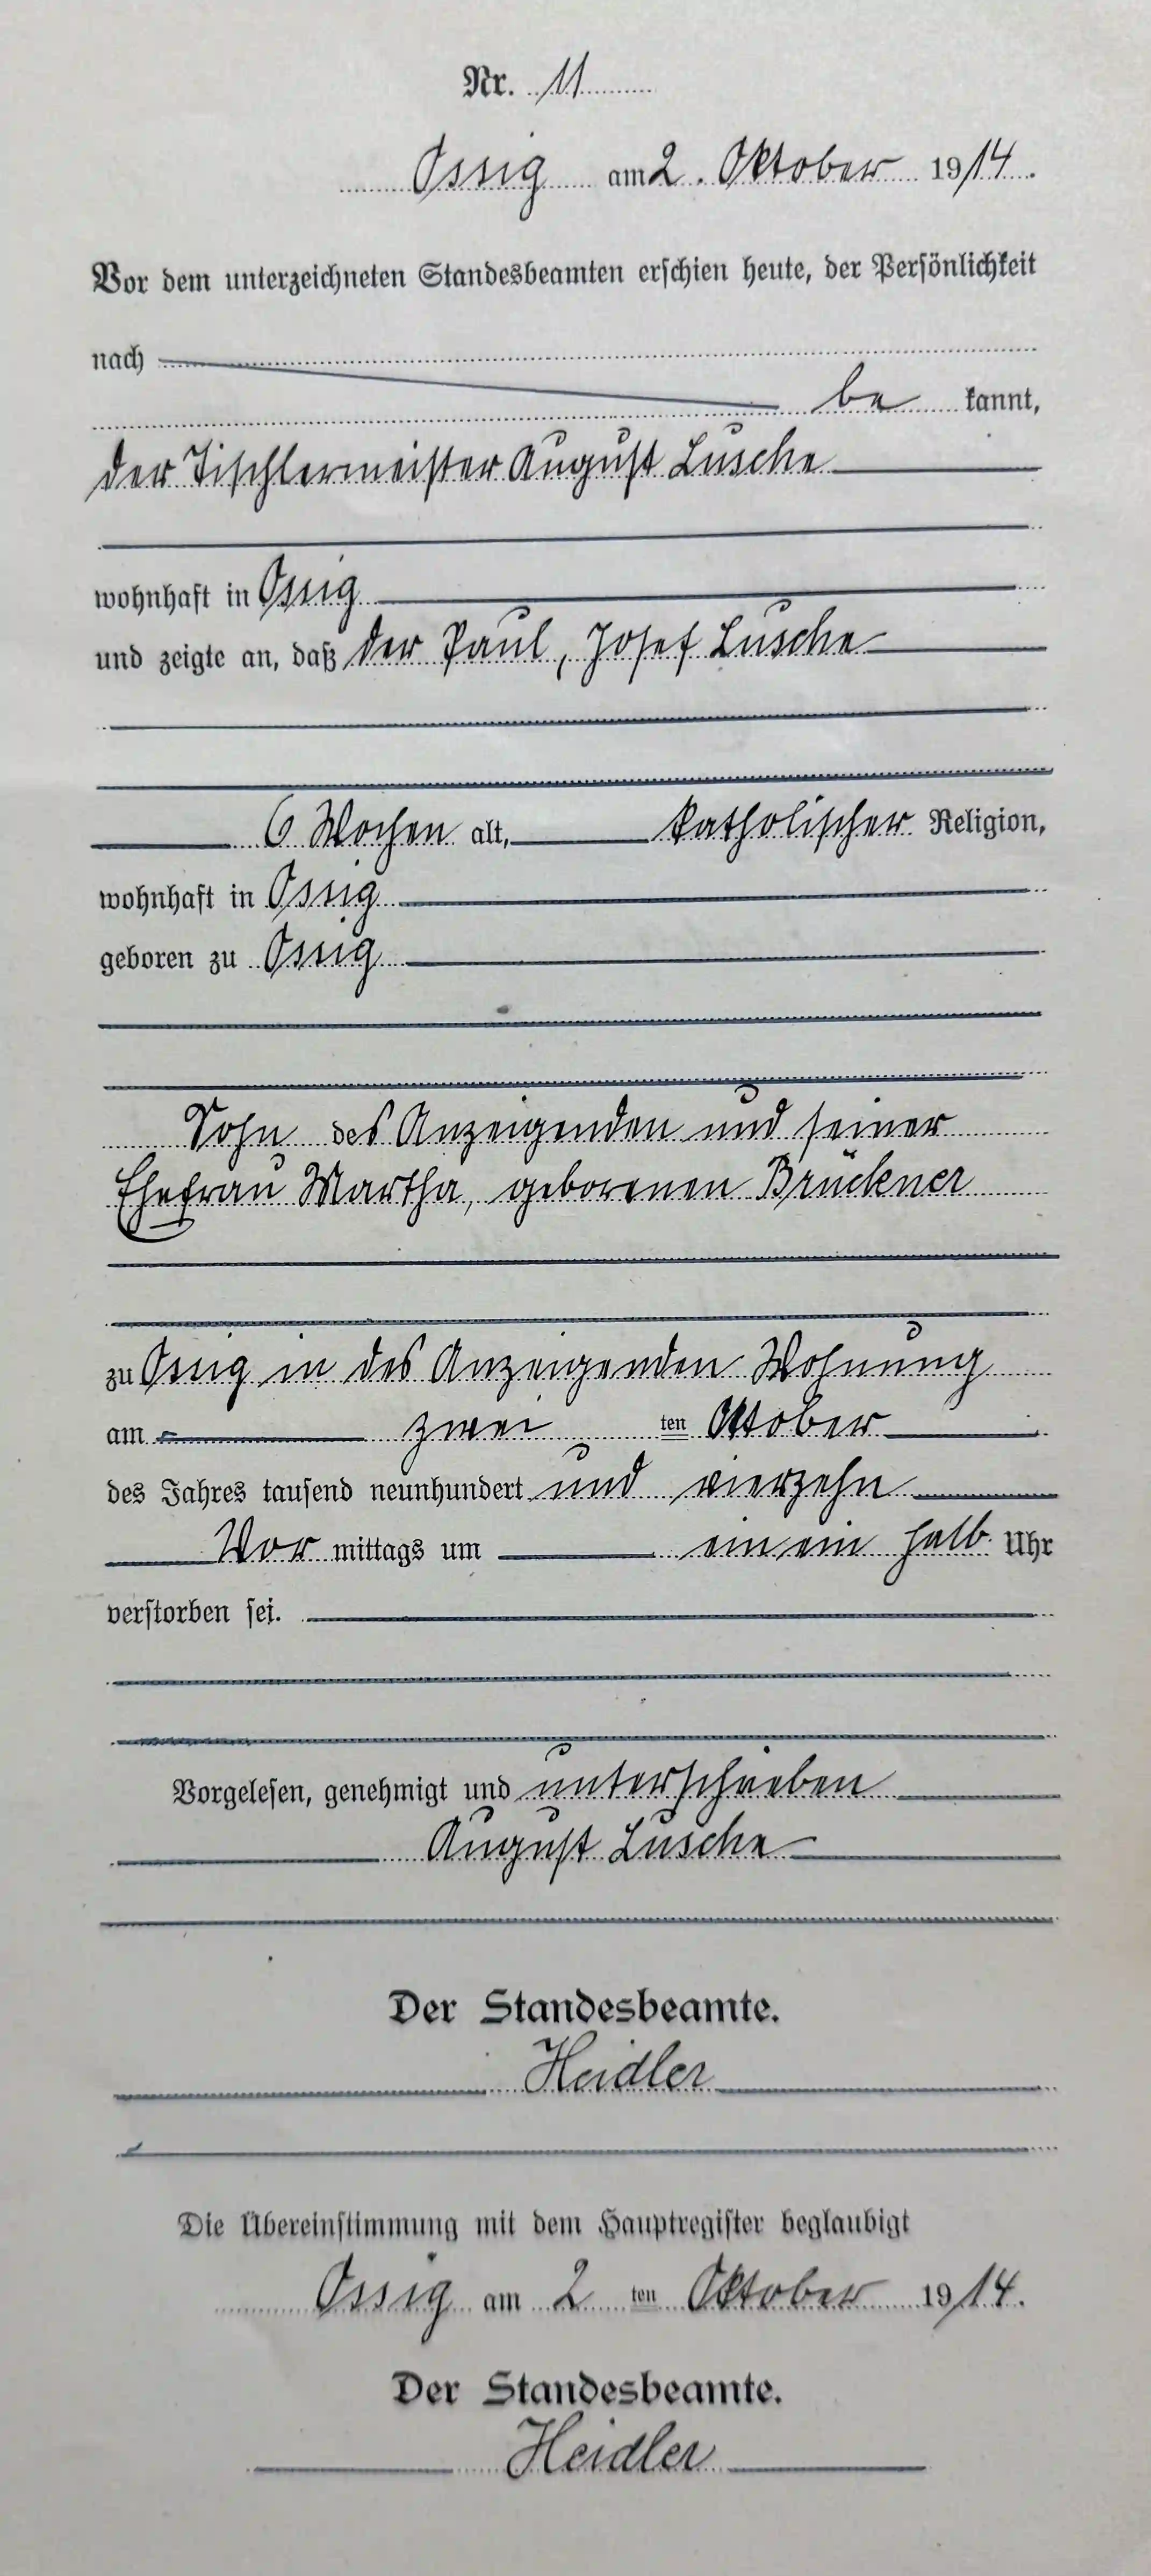 Nr. 11
Ossig am 2. Oktober 1914.
Vor dem unterzeichneten Standesbeamten erschien heute, der Persönlichkeit
nach
be kannt,
der Tischlermeister August Lusche
wohnhaft in Ossig
und zeigte an, daß der Paul, Josef Lusche
6 Wochen alt, katholischer Religion,
wohnhaft in Ossig
geboren zu Ossig
Sohn des Anzeigenden und seiner
Ehefrau Martha, geborenen Brückner
zu Ossig in des Anzeigenden Wohnung
am zwei ten Oktober
des Jahres tausend neunhundert und vierzehn
Vor mittags um ein ein halb Uhr
verstorben sei.
Vorgelesen, genehmigt und unterschrieben
August Lusche
Der Standesbeamte.
Heidler
Die Übereinstimmung mit dem Hauptregister beglaubigt
Ossig am 2 ten Oktober 1914.
Der Standesbeamte.
Heidler